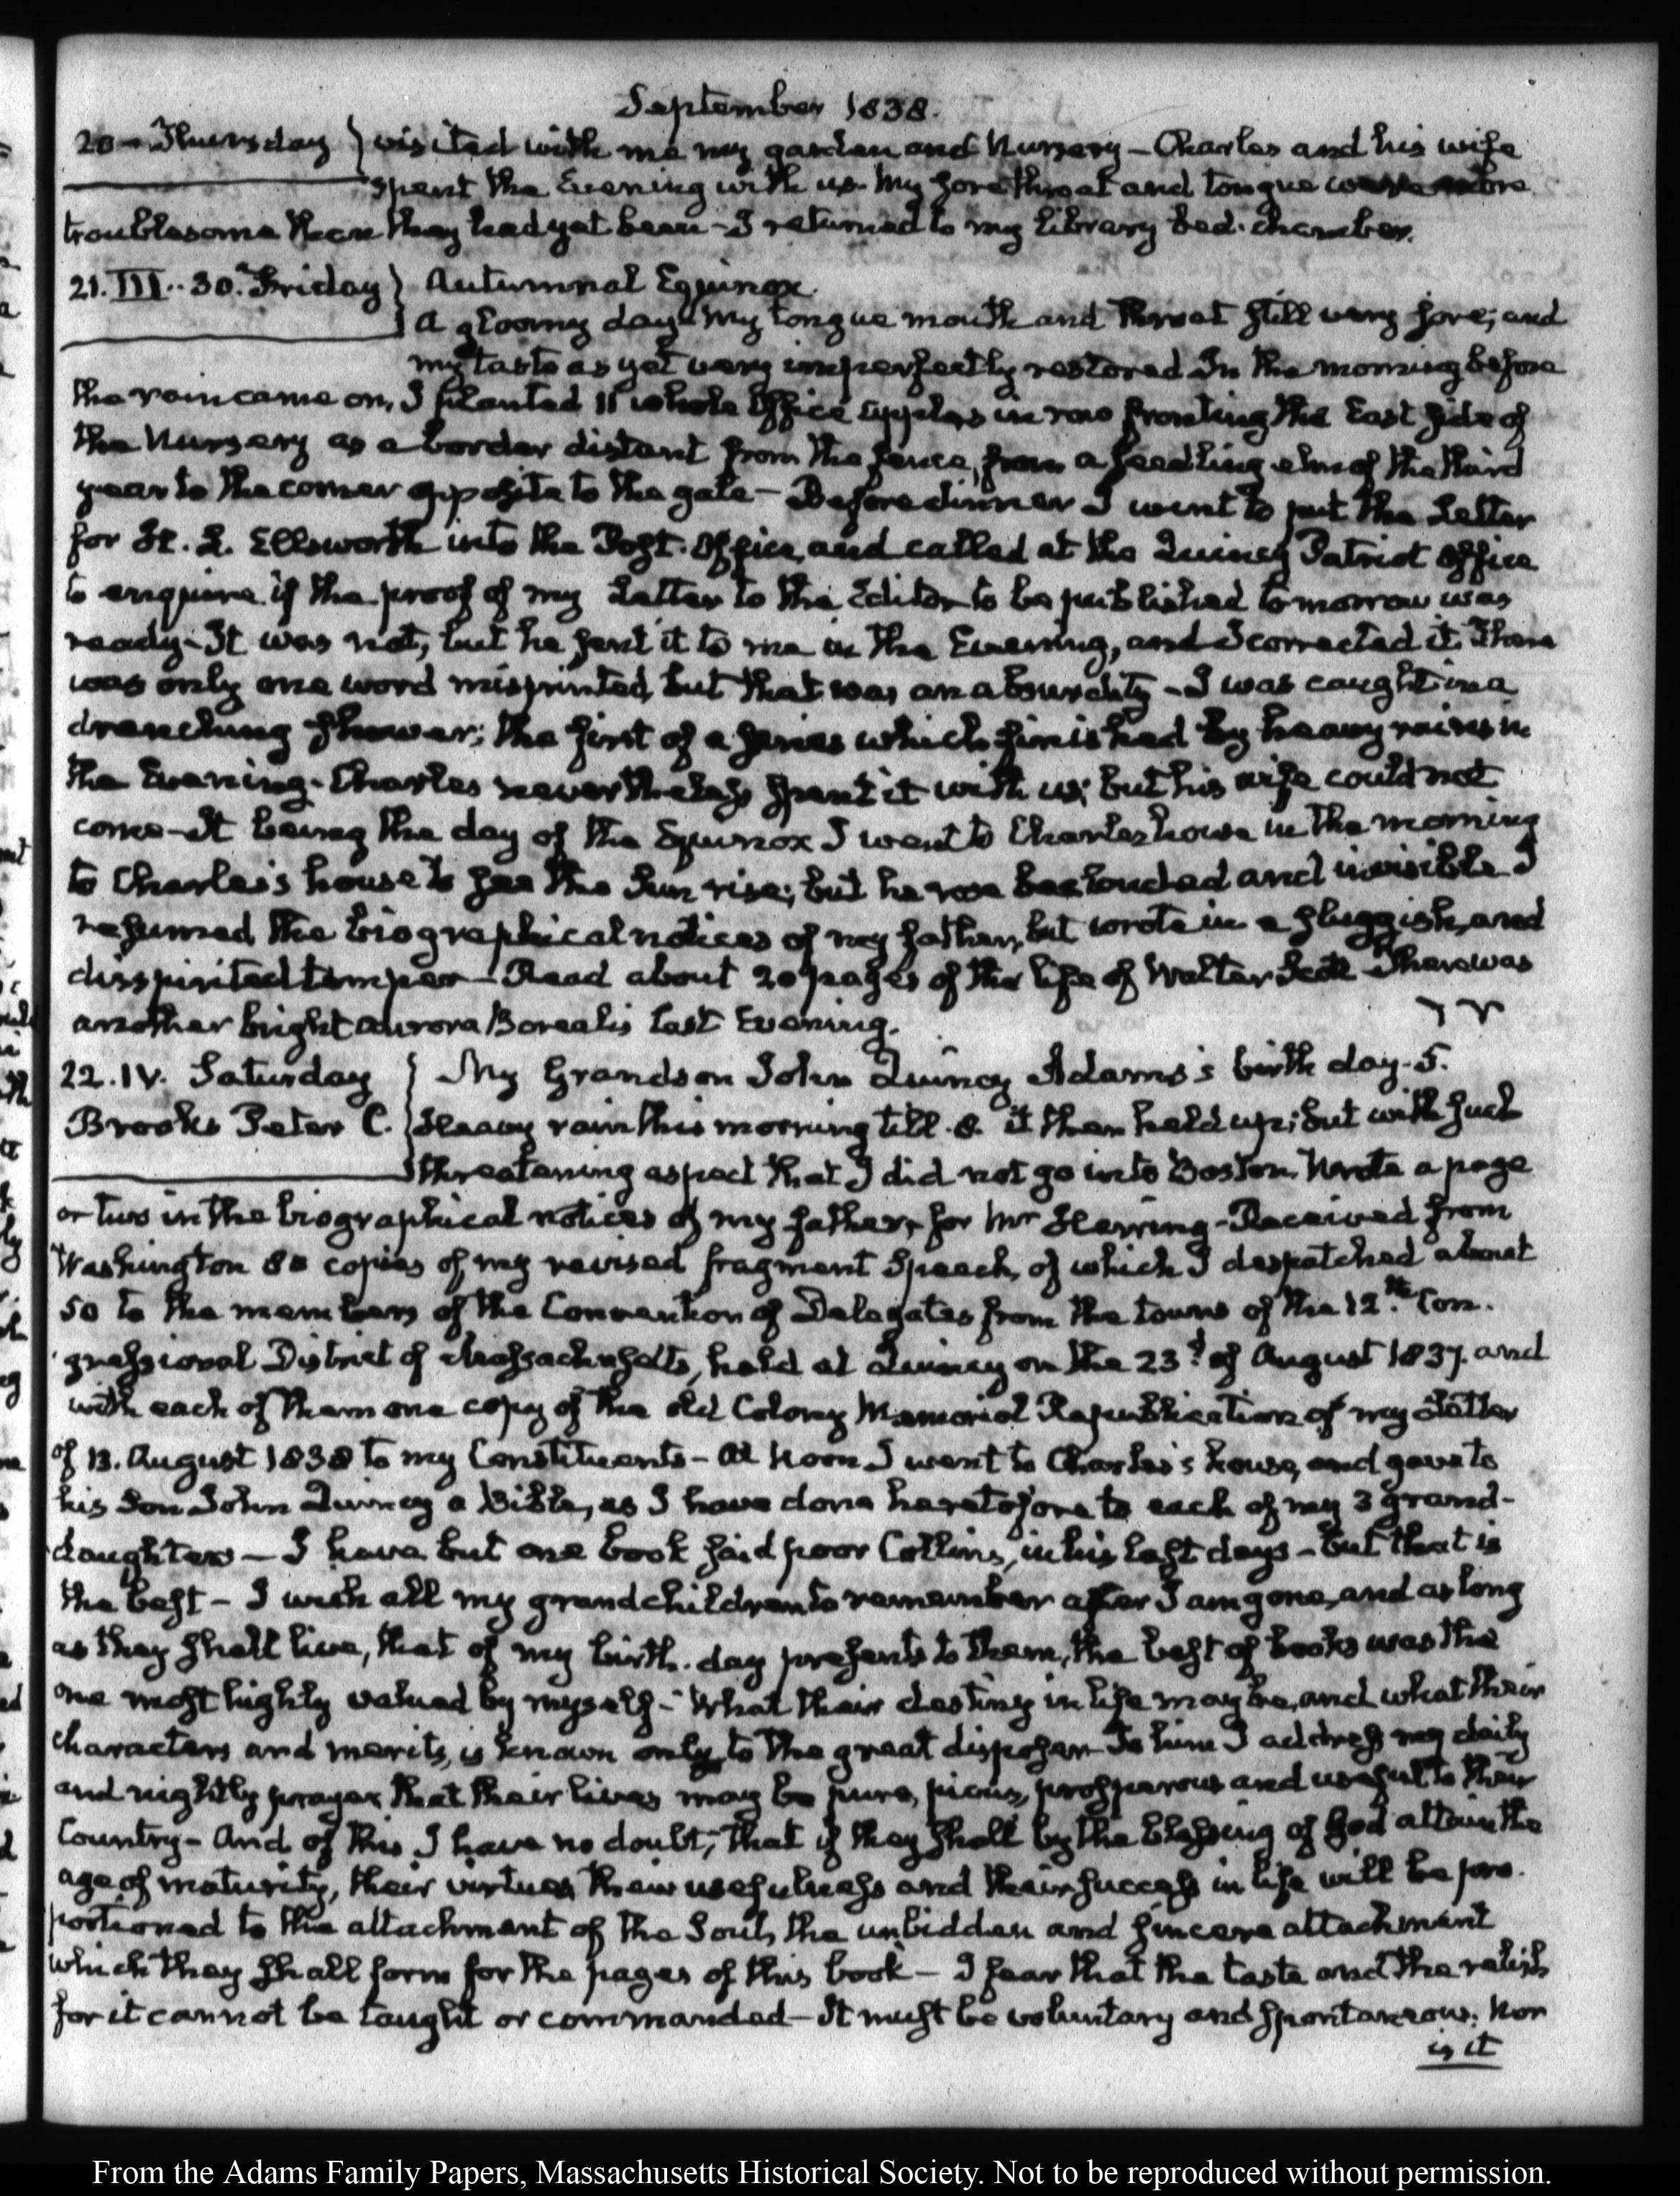 September 1838.
20 - Thursday } visited with me my garden and Nursery - Charles and his wife
spent the Evening with us. My sore throat and tongue were more
troublesome than they had yet been - I returned to my library bed-chamber.
21. III.. 30. Friday } Autumnal Equinox.
A gloomy day. My tongue mouth and throat still very sore; and
my taste as yet very imperfectly restored. In the morning before
the rain came on, I planted 11 whole apples in row fronting the East side of
the Nursery as a border distant from the fence, from a seedling elm of the third
year to the corner opposite to the gate - Before dinner I went to put the Letter
for Ellsworth into the Post-Office, and called at the Quincy Patriot office
to enquire if the proof of my Letter to the Editor to be published tomorrow was
ready - It was not, but he sent it to me in the Evening, and I corrected it. There
was only one word misprinted, but that was an absurdity - I was caught in a
drenching shower; the first of a series which finished by heavy rains in
the Evening. Charles nevertheless spent it with us; but his wife could not
come - It being the day of the Equinox I went to Charles house in the morning
to Charles's house to see the Sun rise; but he rose beclouded and invisible. I
resumed the biographical notices of my father, but wrote in a sluggish, and
disspirited temper - Read about 20 pages of the life of Walter Scott - There was
another bright aurora Borealis last Evening.
22. IV. Saturday } My Grandson John Quincy Adams's birth day. 5.
Brooks Peter C. } Heavy rain this morning till 8. it then held up; but with such
threatening aspect that I did not go into Boston. Wrote a page
or two in the biographical notices of my father, for Mr Herring - Received from
Washington 80 copies of my revised fragment Speech, of which I despatched about
50 to the members of the Convention of Delegates from the towns of the 12th Con-
gressional District of Massachusetts, held at Quincy on the 23d of August 1837. and
with each of them one copy of the old Colony Memorial Republication of my Letter
of 13. August 1838 to my Constituents - At Noon I went to Charles's house, and gave to
his Son John Quincy a Bible, as I have done heretofore to each of my 3 grand-
daughters - I have but one book said poor Collins, in his last days - but that is
the best - I wish all my grandchildren to remember after I am gone, and as long
as they shall live, that of my birth-day presents to them, the best of books was the
one most highly valued by myself - What their destiny in life may be, and what their
characters and merits, is known only to the great disposer - To him I address my daily
and nightly prayer that their lives may be pure, pious, prosperous and useful to their
Country - And of this I have no doubt, that if they shall by the blessing of God attain the
age of maturity, their virtues their usefulness and their success in life will be pro-
portioned to the attachment of the Soul, the unbidden and sincere attachment
which they shall form for the pages of this book - I fear that the taste and the relish
for it cannot be taught or commanded - It must be voluntary and spontaneous; Nor
is it
From the Adams Family Papers, Massachusetts Historical Society. Not to be reproduced without permission.